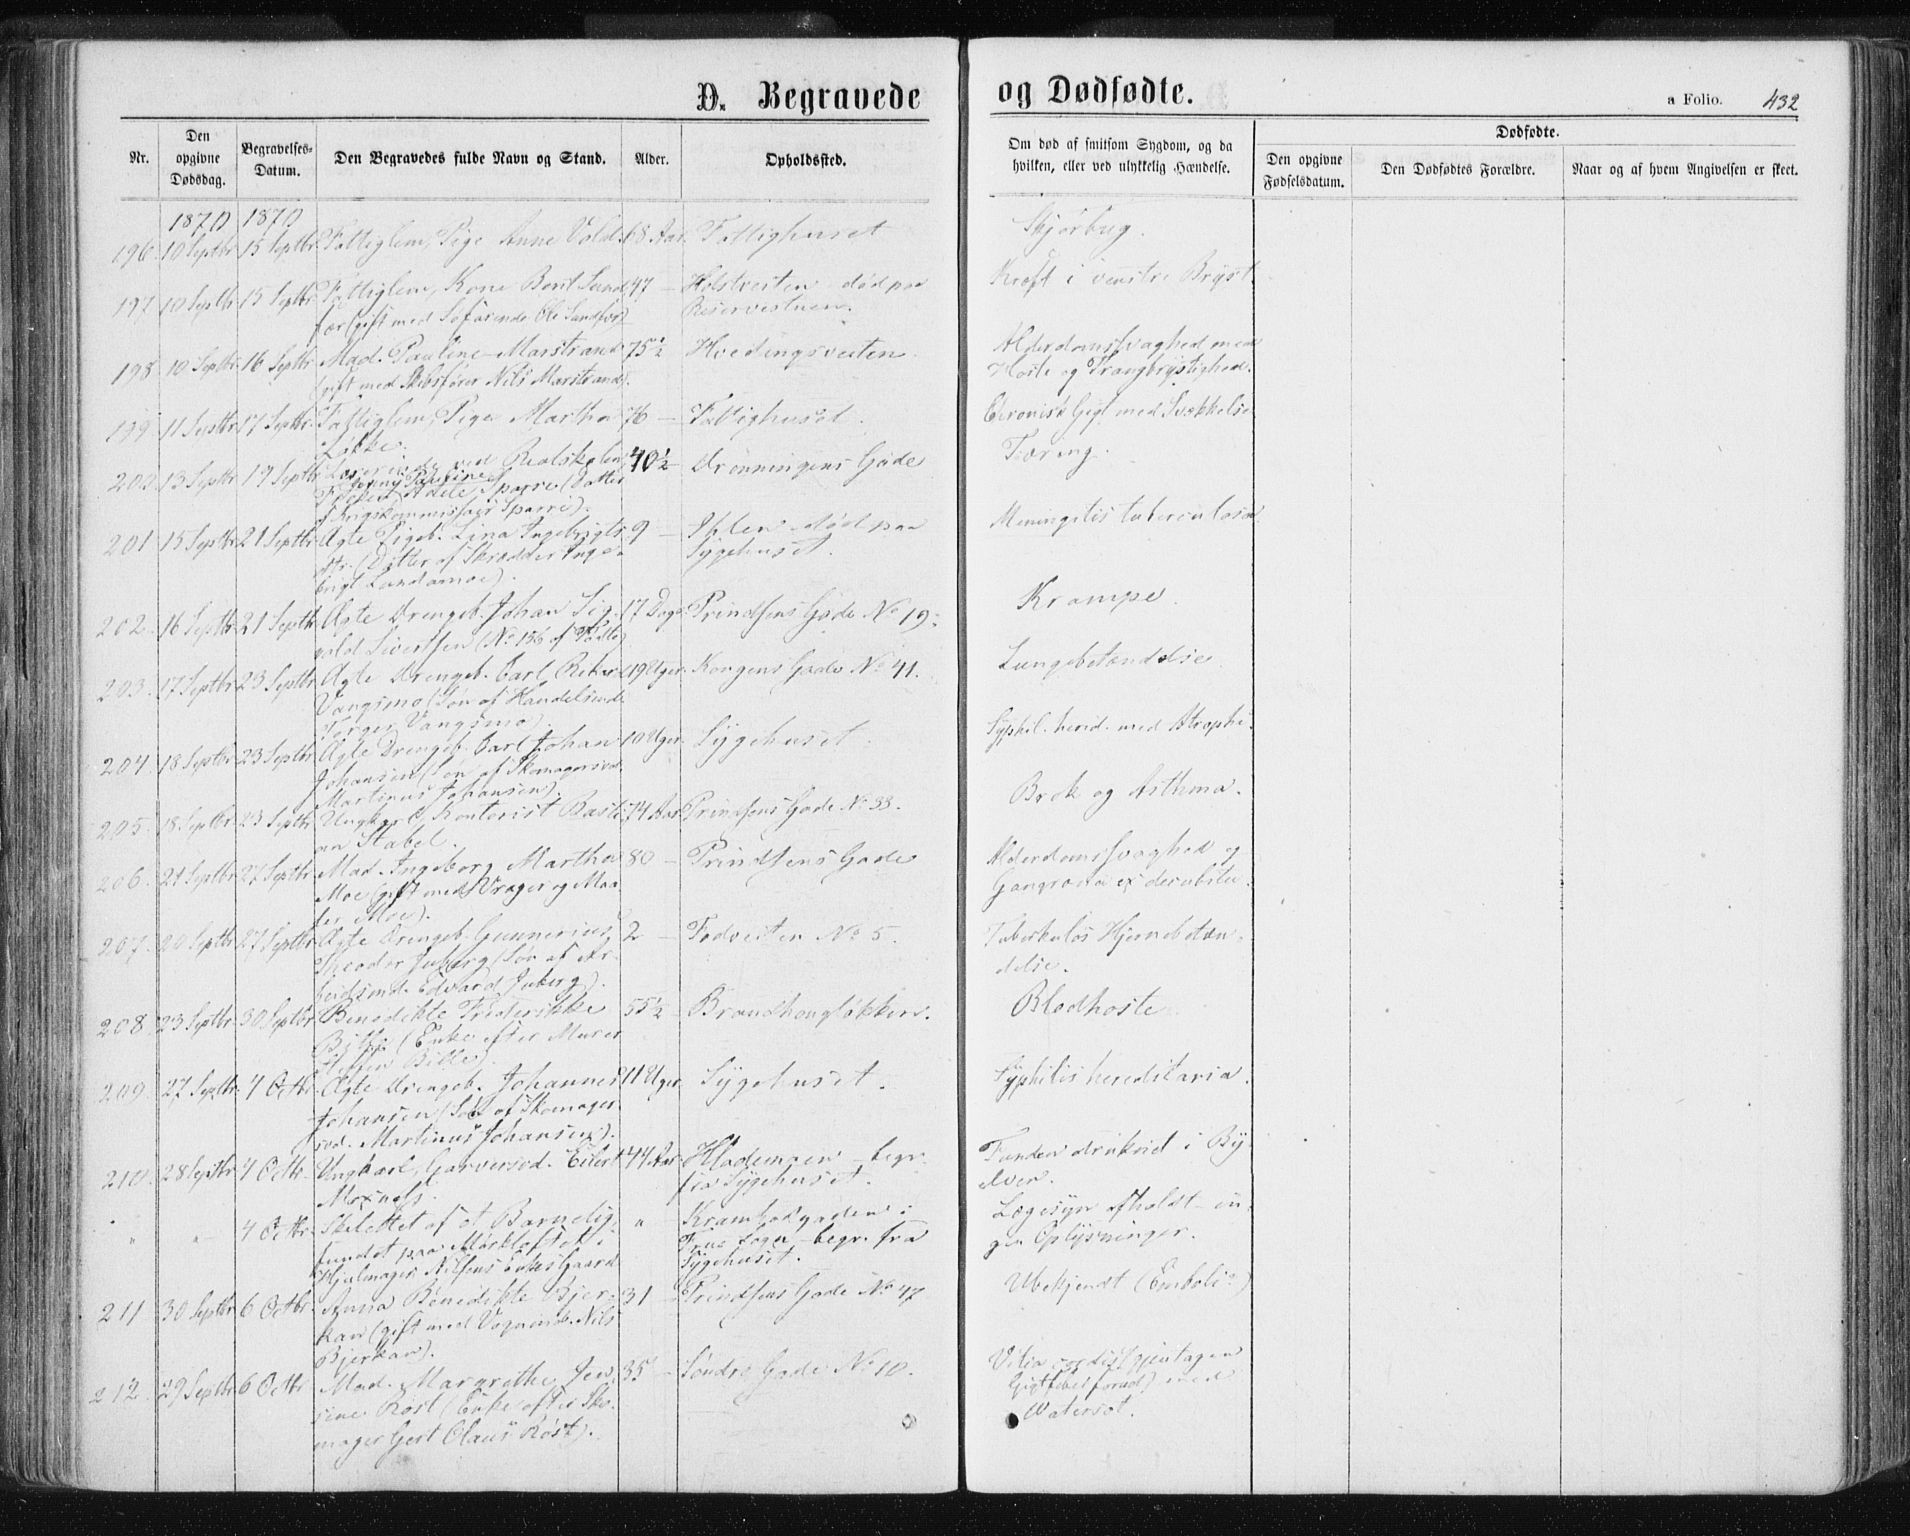 D. Begravede og Dødfødte.
a Folio. 432
Nr.
Den opgivne Dødsdag.
Begravelses-Datum.
Den Begravedes fulde Navn og Stand.
Alder.
Opholdssted.
Om død af smitsom Sygdom, og da hvilken, eller ved ulykkelig Hændelse.
Dødfødte.
Den opgivne Fødselsdatum.
Den Dødfødtes Forældre.
Naar og af hvem Angivelsen er skeet.
1870 1870
196. 10 Septbr. 15 Septbr. Fattiglem, Pige Anne Vold. 68 Aar. Fattighuset Skjørbug.
197 10 Septbr. 15 Septbr. Fattiglem, Kone Berit Sand- 47 — Holstveiten - død paa Kræft i venstre Bryst.
fær (gift med Søfarende Ole Sandfær) Reservestuen.
198. 10 Septbr. 16 Septbr. Mad. Pauline Marstrand 75½ — Hvedingsveiten. Alderdomssvaghed med
(gift med Skibsfører Nils Marstrand). Hoste og Trangbrystighed.
199. 11 Septbr. 17 Septbr. Fattiglem, Pige Martha 76 — Fattighuset. Chronisk Gigt med Svækkelse
Løkke.
200. 13 Septbr. 19 Septbr. Lærerinde ved Realskolen 40½ — Dronningens Gade Tæring.
Jenny Pauline
Adele Sparre (Datter
af Krigskommissær Sparre).
201. 15 Septbr. 21 Septbr. Ægte Pigeb. Lina Ingebrigts- 9 — Ihlen - død paa Meningitis tuberculosa
dtr. (Datter af Skrædder Inge- Sygehuset.
brigt Lundamoe).
202. 16 Septbr. 21 Septbr. Ægte Drengeb. Johan Sig- 17 Dage. Prindsens Gade No 19. Krampe.
vald Sivertsen (No 156 af Fødte)
203. 17 Septbr. 23 Septbr. Ægte Drengeb. Carl 19 Uger. Kongens Gade No 41. Lungebetændelse.
Vangsmo (Søn af Handelsmand
Vangsmo).
204. 18 Septbr. 23 Septbr. Ægte Drengeb. Carl Johan 10 Uger. Sygehuset. Syphil. hered. med Atrophi.
Johansen (Søn af Skomagersvd.
Martinus Johansen).
205. 18 Septbr. 23 Septbr. Ungkarl, Kontorist Basti- 74 Aar. Prindsens Gade No 33. Brok og Asthma.
an Stabel.
206. 21 Septbr. 27 Septbr. Mad. Ingeborg Martha 80 — Prindsens Gade Alderdomssvaghed og
Moe (gift med Vrager og Maa- Gangræna ex decubitu.
ler Moe).
207. 20 Septbr. 27 Septbr. Ægte Drengeb. Gunnerius 2 — Fodveiten No 5. Tuberkuløs Hjernebetæn-
Theodor Juberg (Søn af Ar- delse.
beidsmd. Edvard Juberg).
208. 23 Septbr. 30 Septbr. Benedikte Frederikke 55½ — Brandhougløkken. Blodhoste.
Bille (Enke efter Murer
Bille).
209. 27 Septbr. 4 Octbr. Ægte Drengeb. Johannes 11 Uger. Sygehuset. Syphilis hereditaria.
Johansen (Søn af Skomager-
svd. Martinus Johansen).
210. 28 Septbr. 4 Octbr. Ungkarl, Garversvd. Eilert 44 Aar. Hlademoen - begr. Funden druknet i By-
Moxnæs. fra Sygehuset. elven.
" " 4 Octbr. Skelettet af et Barnelig, " Krambodgaden i Lægesyn afholdt - in-
fundet paa Mørkloftet i Frue Sogn - begr. fra gen Oplysninger.
Hjulmager Nilsens Enkes Gaard Sygehuset.
211 30 Septbr. 6 Octbr. Anna Benedikte Bjer- 31 — Prindsens Gade No 47 Ubekjendt (Emboli?)
kan (gift med Vognmd. Nils
Bjerkan).
212. 29 Septbr. 6 Octbr. Mad. Margrethe Jen- 35 — Søndre Gade No 10. Vitia cordis (gjentagen
sine Røst (Enke efter Sko- Gigtfeber forud) med
mager Gert Claus Røst). Watersot.